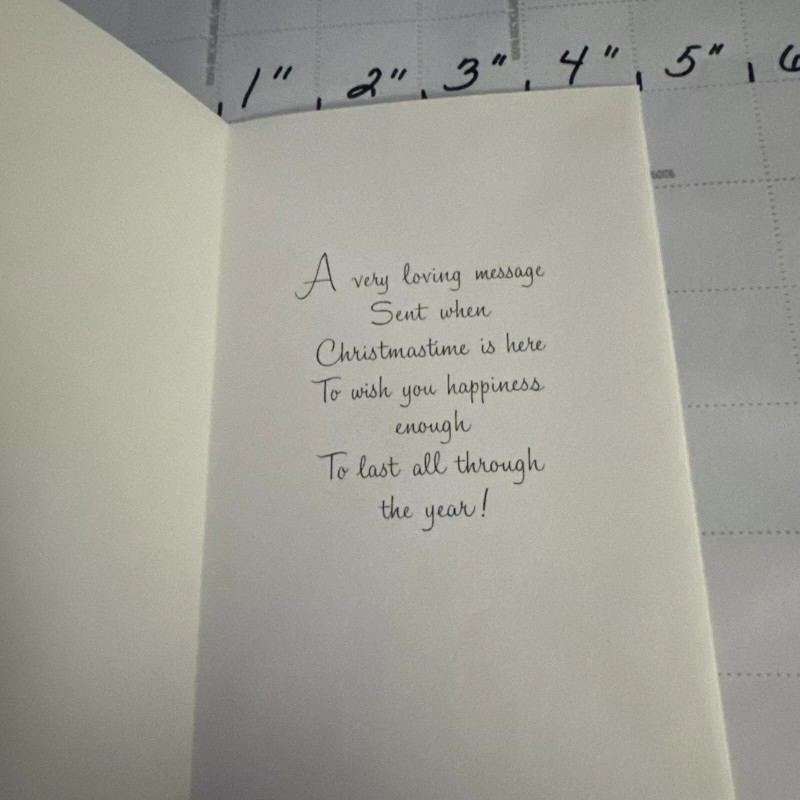 1" 2" 3" 4" 5" 6
A very loving message
Sent when
Christmastime is here
To wish you happiness
enough
To last all through
the year!